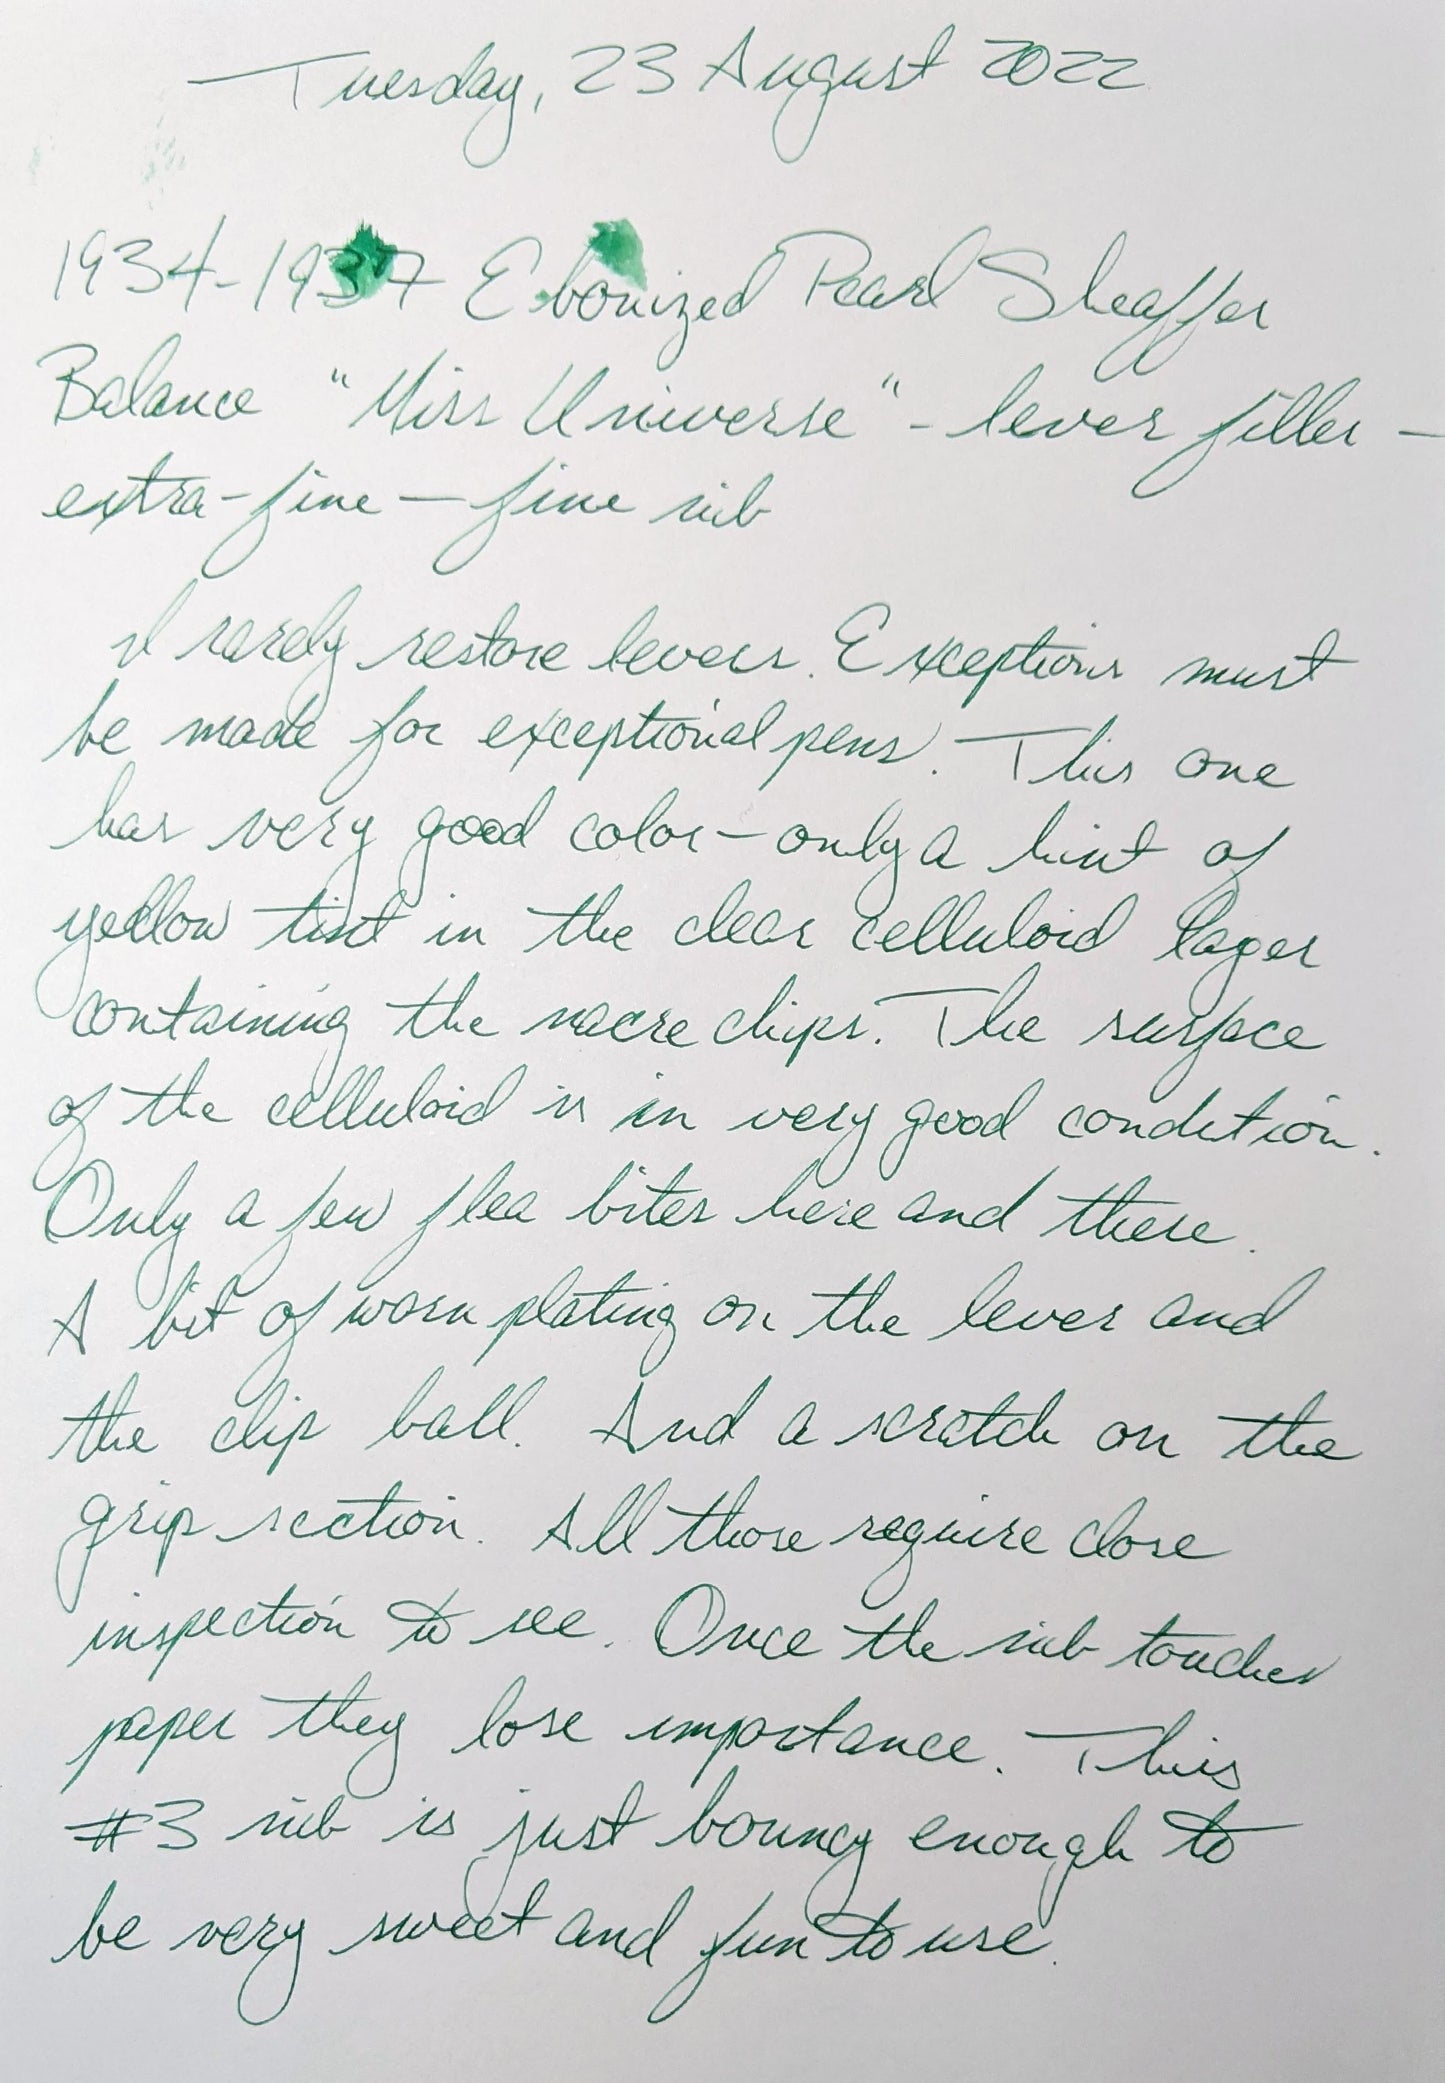 Tuesday, 23 August 2022
1934-1937 Ebonized Pearl Sheaffer
Balance "Miss Universe" - lever filler -
extra-fine - fine nib
I rarely restore levers. Exceptions must
be made for exceptional pens. This one
has very good color - only a hint of
yellow tint in the clear celluloid layer
containing the nacre chips. The surface
of the celluloid is in very good condition.
Only a few flea bites here and there.
A bit of worn plating on the lever and
the clip ball. And a scratch on the
grip section. All those require close
inspection to see. Once the nib touches
paper they lose importance. This
#3 nib is just bouncy enough to
be very sweet and fun to use.